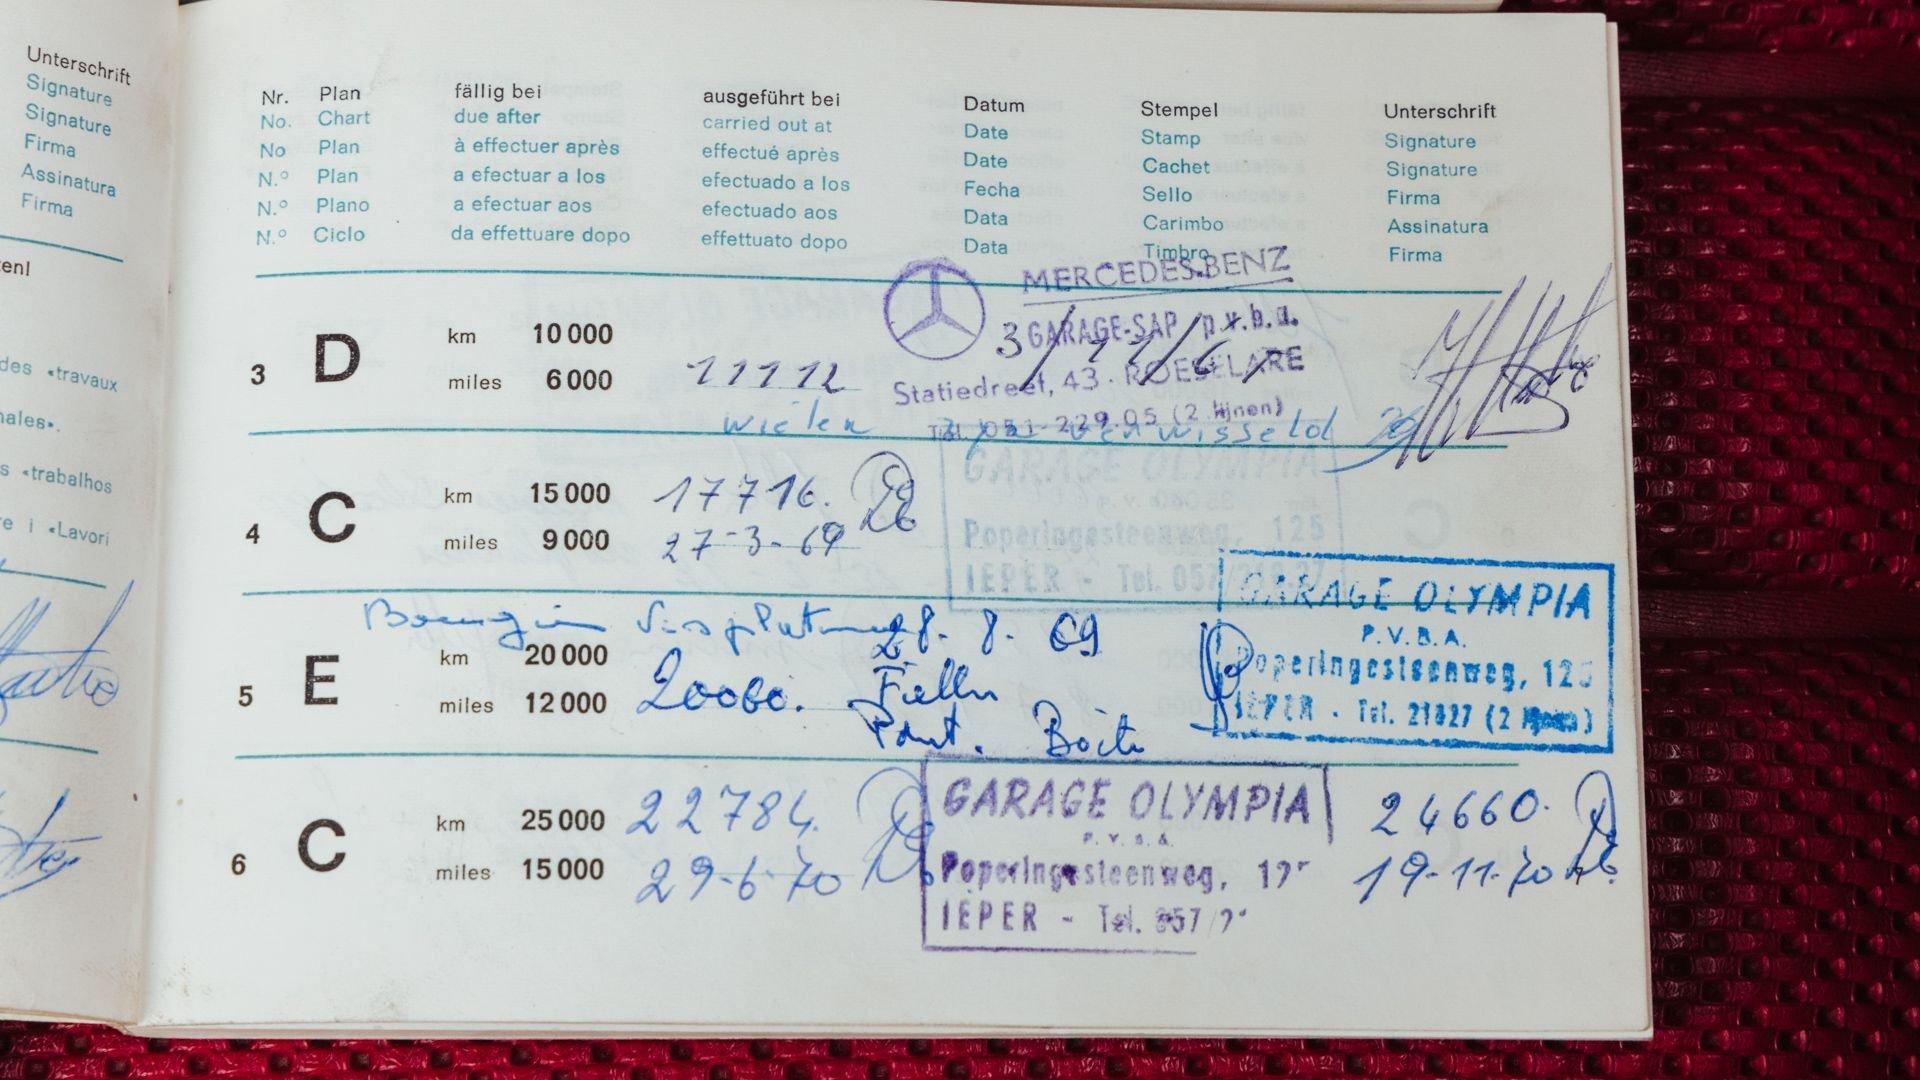 Unterschrift
Signature
Signature
Firma
Assinatura
Firma
en!
des «travaux
nales».
s «trabalhos
re i «Lavori
Nr. Plan fällig bei ausgeführt bei Datum Stempel Unterschrift
No. Chart due after carried out at Date Stamp Signature
No Plan à effectuer après effectué après Date Cachet Signature
N.º Plan a efectuar a los efectuado a los Fecha Sello Firma
N.º Plano a efectuar aos efectuado aos Data Carimbo Assinatura
N.º Ciclo da effettuare dopo effettuato dopo Data Timbro Firma
MERCEDES-BENZ
GARAGE-SAP p.v.b.a.
Statiedreef, 43 - ROESELARE
Tel. 051-229.05 (2 lijnen)
3 D km 10 000
miles 6 000 11112
wielen
4 C km 15 000 17716.
miles 9 000 27-3-69
GARAGE OLYMPIA
Poperingesteenweg, 125
IEPER - Tel. 057/218.27
28.8.69
5 E km 20 000
miles 12 000 20060.
GARAGE OLYMPIA
P.V.B.A.
Poperingesteenweg, 125
IEPER - Tel. 21827 (2 lijnen)
6 C km 25 000 22784. 24660.
miles 15 000 29-6-70 19-11-70
GARAGE OLYMPIA
P.V.B.A.
Poperingesteenweg, 12
IEPER - Tel. 057/2